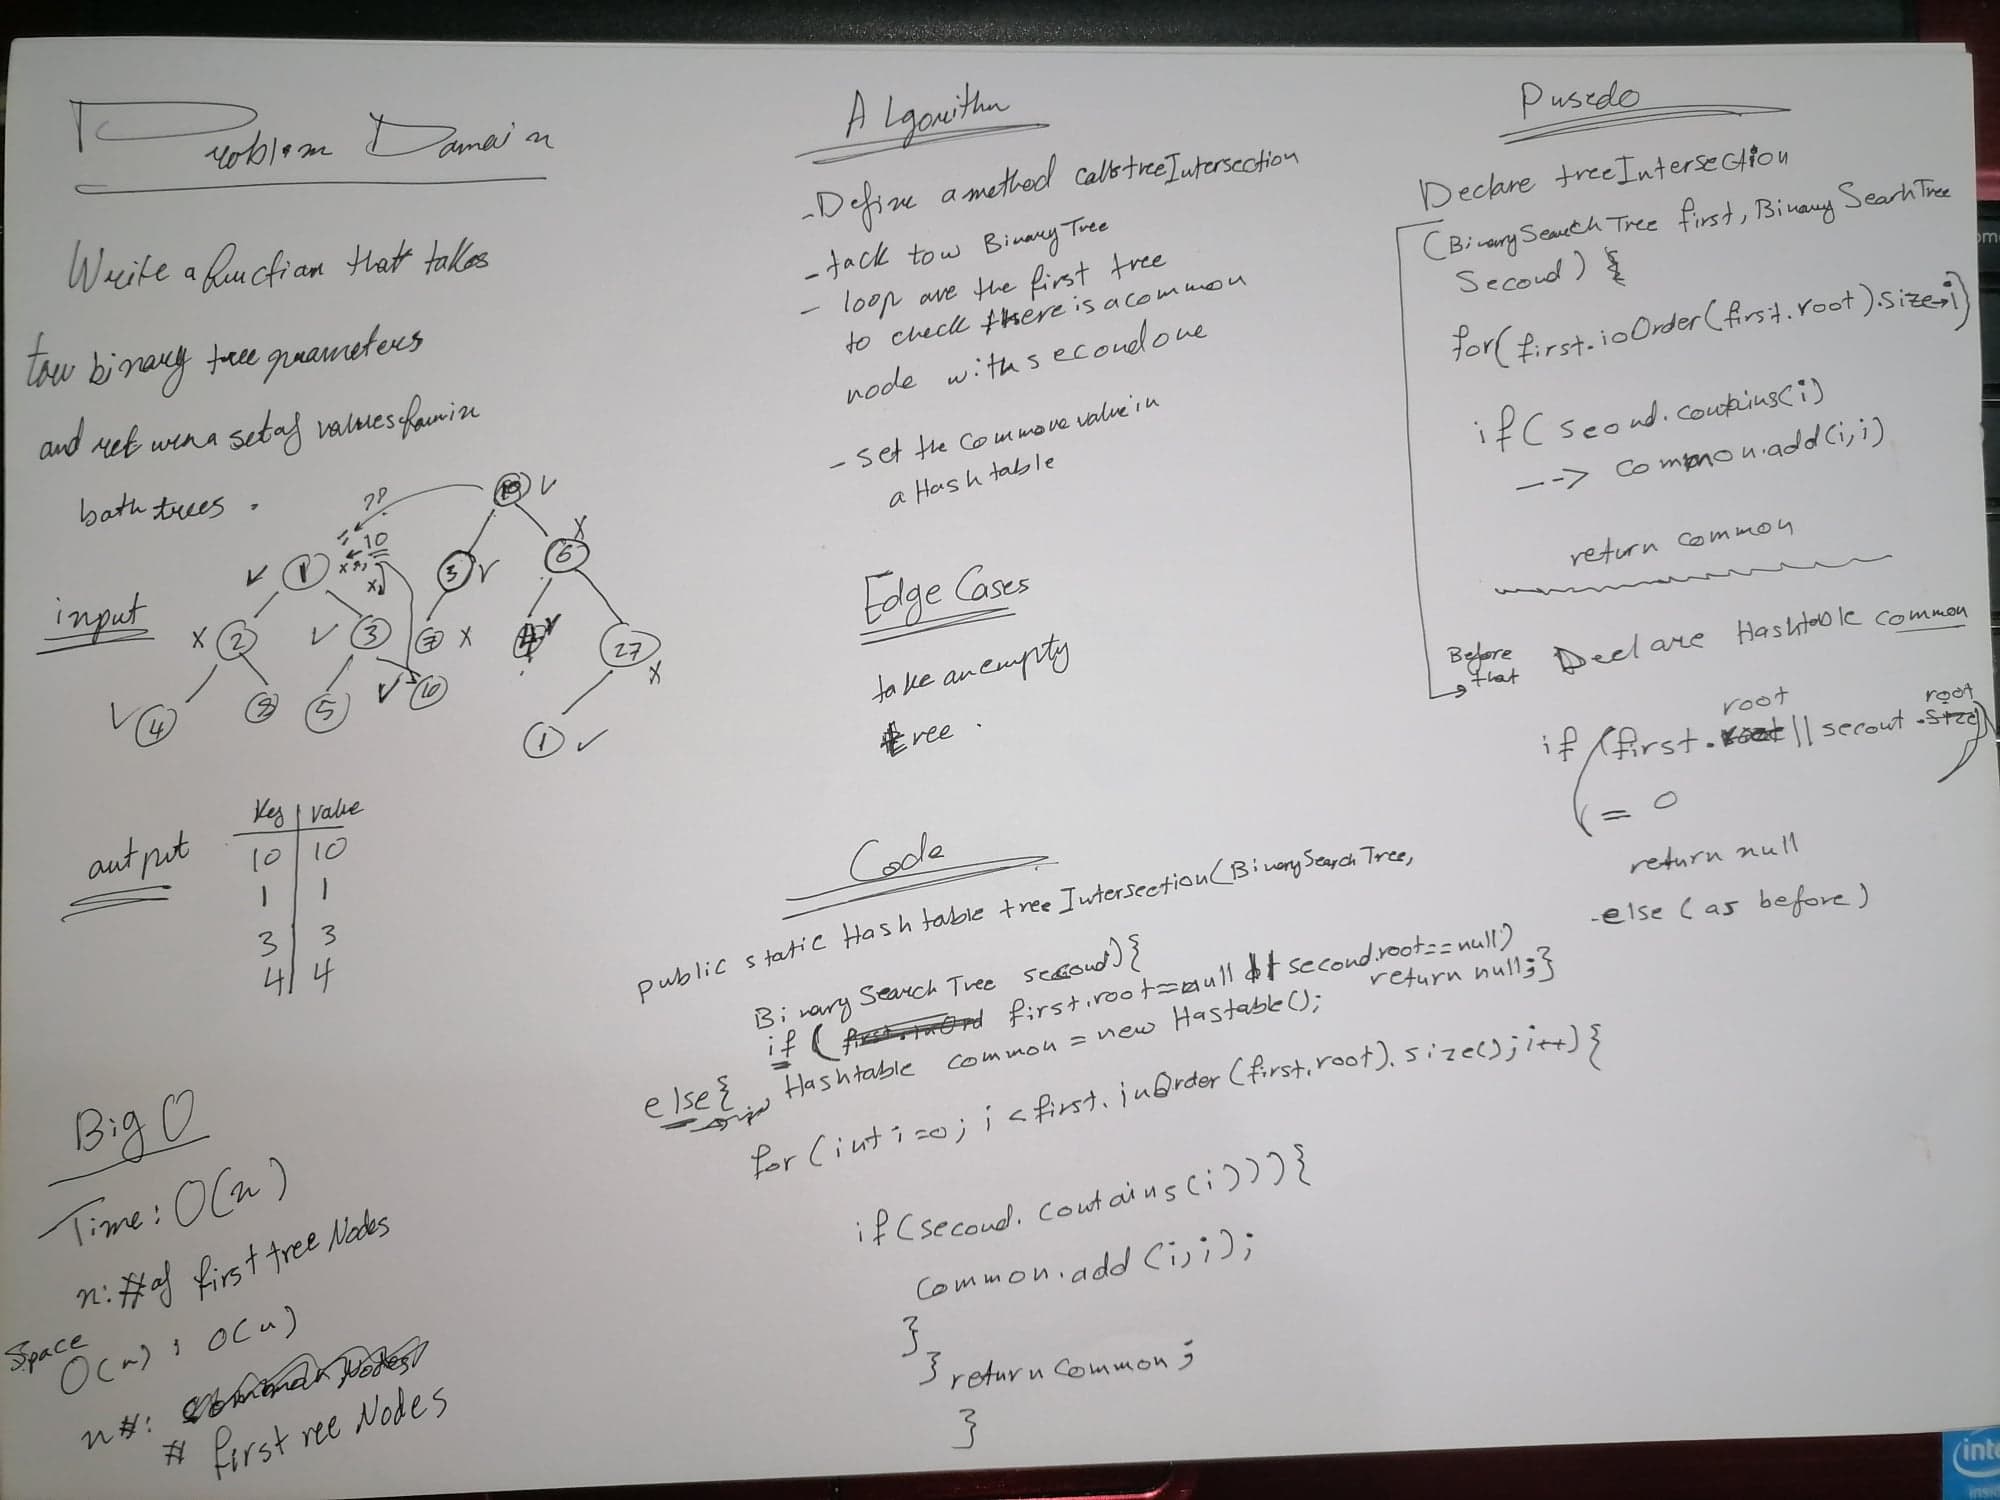 Problem Domain
Write a function that takes
tow binary tree prameters
and return a set of values fown in
both trees .
input
1
10
2
3
4
8
5
10
10
3
6
7
4
27
1
output
Key | value
10 | 10
1 | 1
3 | 3
4 | 4
Big O
Time: O(n)
n: # of first tree Nodes
Space
O(n) : O(n)
n #:
# first ree Nodes
Algorithm
- Define a method calls treeIntersection
- tack tow BinaryTree
- loop ove the first tree
to check there is a common
node with second one
- set the commone value in
a Hash table
Edge Cases
take an empty
tree .
Code
public static Hashtable treeIntersection(BinarySearchTree,
BinarySearchTree second){
if ( first.root==null || second.root==null)
return null;}
else{ Hashtable common = new Hastable();
for(int i=0; i < first.inOrder(first.root).size(); i++){
if(second.contains(i))){
common.add(i,i);
}
} return common;
}
Pusedo
Declare treeIntersection
(BinarySearchTree first, BinarySearhTree
Second) {
for(first.ioOrder(first.root).size→i)
if( seond.contains(i)
--> common.add(i,i)
return common
Before
that
Declare Hashtable common
root root
if (first. || secout .size)
= 0
return null
-else (as before)
intel
inside